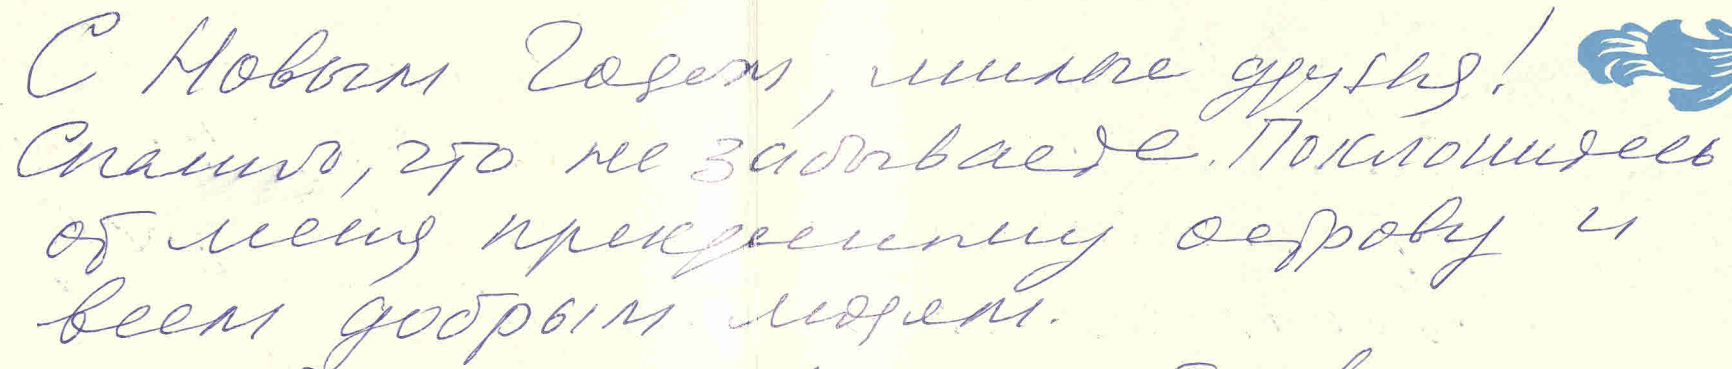 С Новым Годом, милые друзья!
Спасибо, что не забываете. Поклонитесь
от меня прекрасному острову и
всем добрым людям.